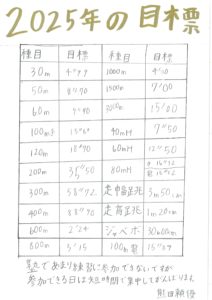 2025年の目標
種目 目標 種目 目標
30m 4"99 1000m 4'10
50m 8"90 1500m 7'00
60m 9"90 3000m 15'00
100m 15"60 40mH 7"50
120m 18"90 60mH 12"50
200m 35"50 80mH
300m 58"92 走幅跳 3m50cm
400m 88"90 走高跳 1m20cm
600m 2'24 ジャベボ 30m00cm
800m 3'15 100m 15"89
塾であまり練習に参加できないですが
参加できる日は短時間で集中してがんばります